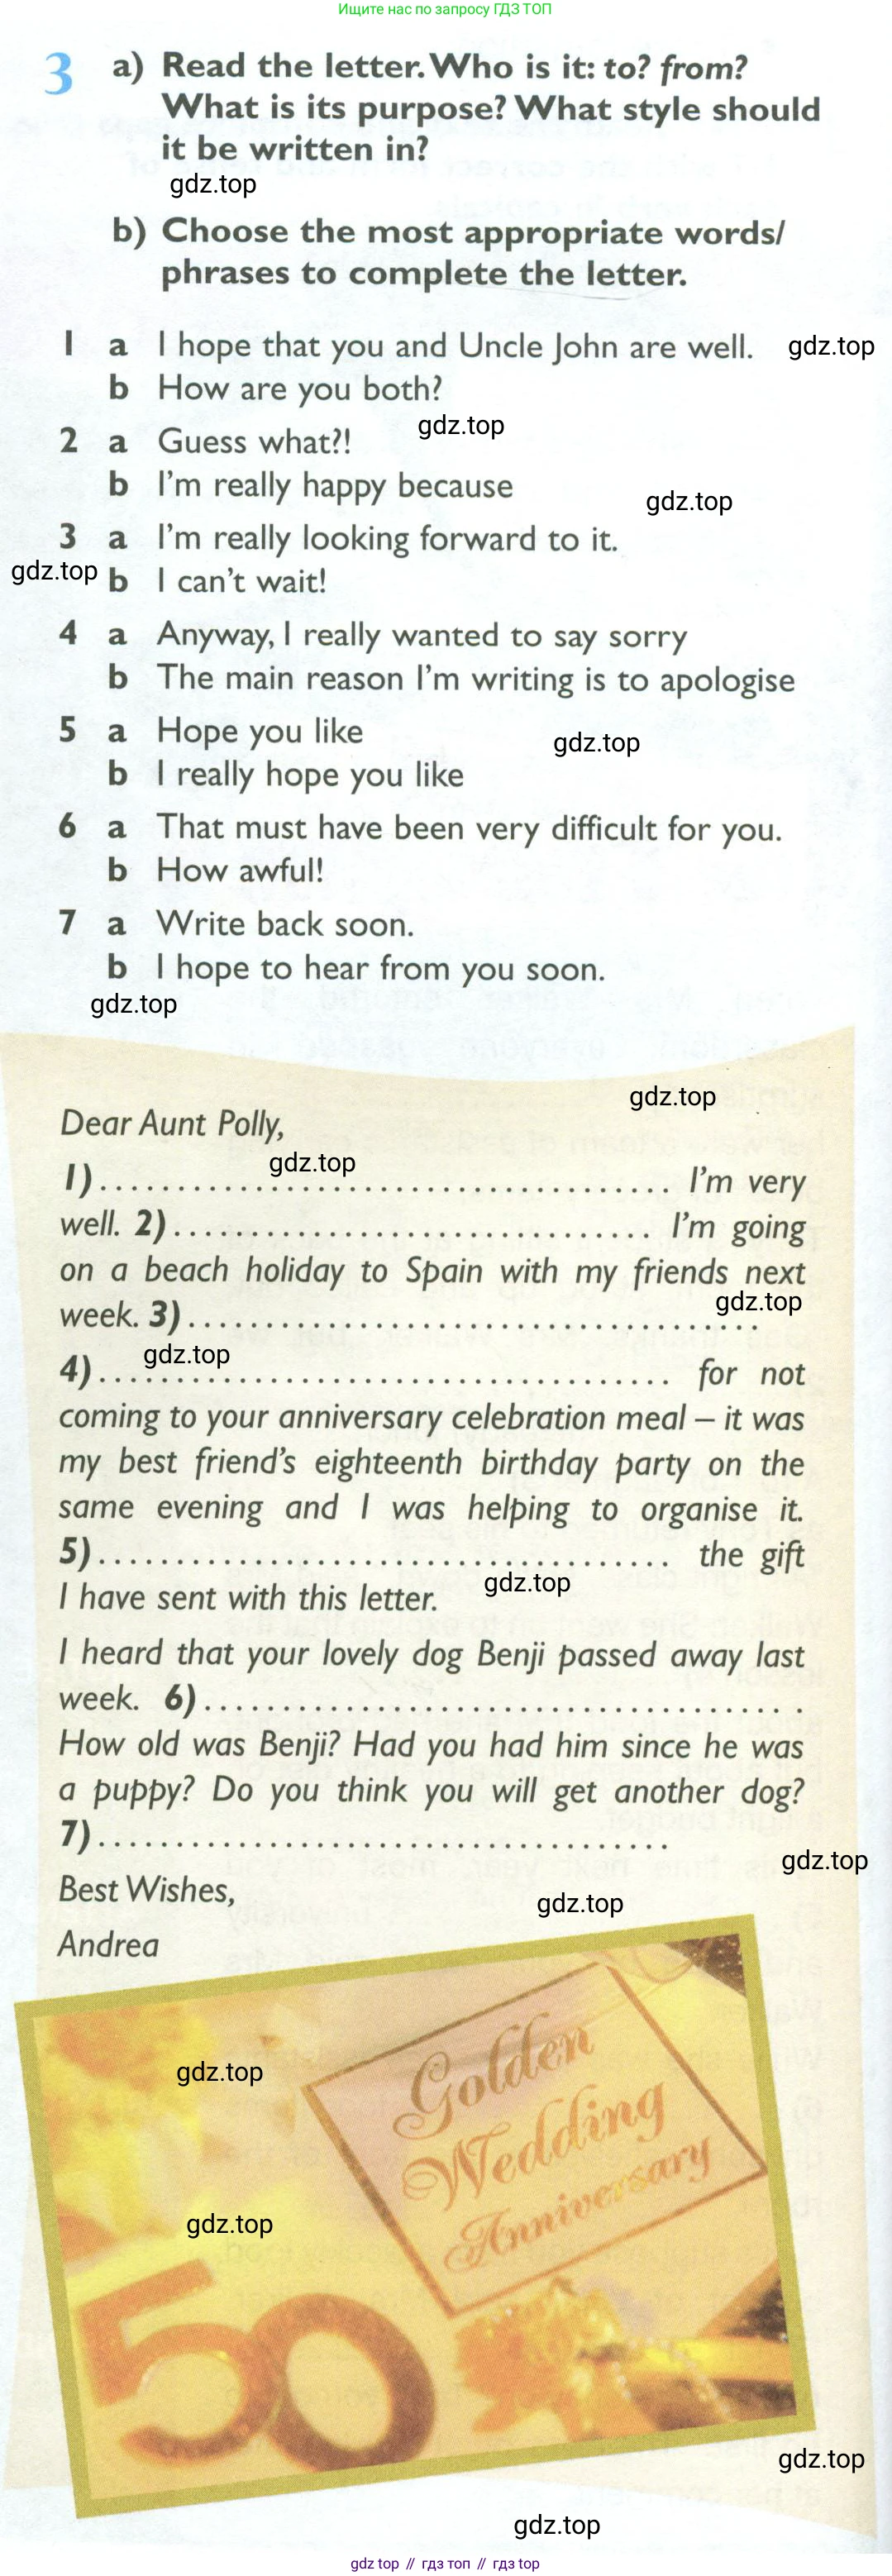 Ищите нас по запросу ГДЗ ТОП
3 a) Read the letter. Who is it: to? from?
What is its purpose? What style should
it be written in?
gdz.top
b) Choose the most appropriate words/
phrases to complete the letter.
1 a I hope that you and Uncle John are well. gdz.top
b How are you both?
gdz.top
2 a Guess what?!
b I'm really happy because
gdz.top
3 a I'm really looking forward to it.
gdz.top
b I can't wait!
4 a Anyway, I really wanted to say sorry
b The main reason I'm writing is to apologise
5 a Hope you like
gdz.top
b I really hope you like
6 a That must have been very difficult for you.
b How awful!
7 a Write back soon.
b I hope to hear from you soon.
gdz.top
gdz.top
Dear Aunt Polly,
gdz.top
1) ..................................... I'm very
well. 2) ............................... I'm going
on a beach holiday to Spain with my friends next
gdz.top
week. 3) .....................................
gdz.top
4) ..................................... for not
coming to your anniversary celebration meal – it was
my best friend's eighteenth birthday party on the
same evening and I was helping to organise it.
5) ..................................... the gift
gdz.top
I have sent with this letter.
I heard that your lovely dog Benji passed away last
week. 6) .......................................
How old was Benji? Had you had him since he was
a puppy? Do you think you will get another dog?
7) .....................................
gdz.top
Best Wishes,
gdz.top
Andrea
Golden
gdz.top
Wedding
Anniversary
gdz.top
50
gdz.top
gdz.top
gdz top // гдз топ // гдз top